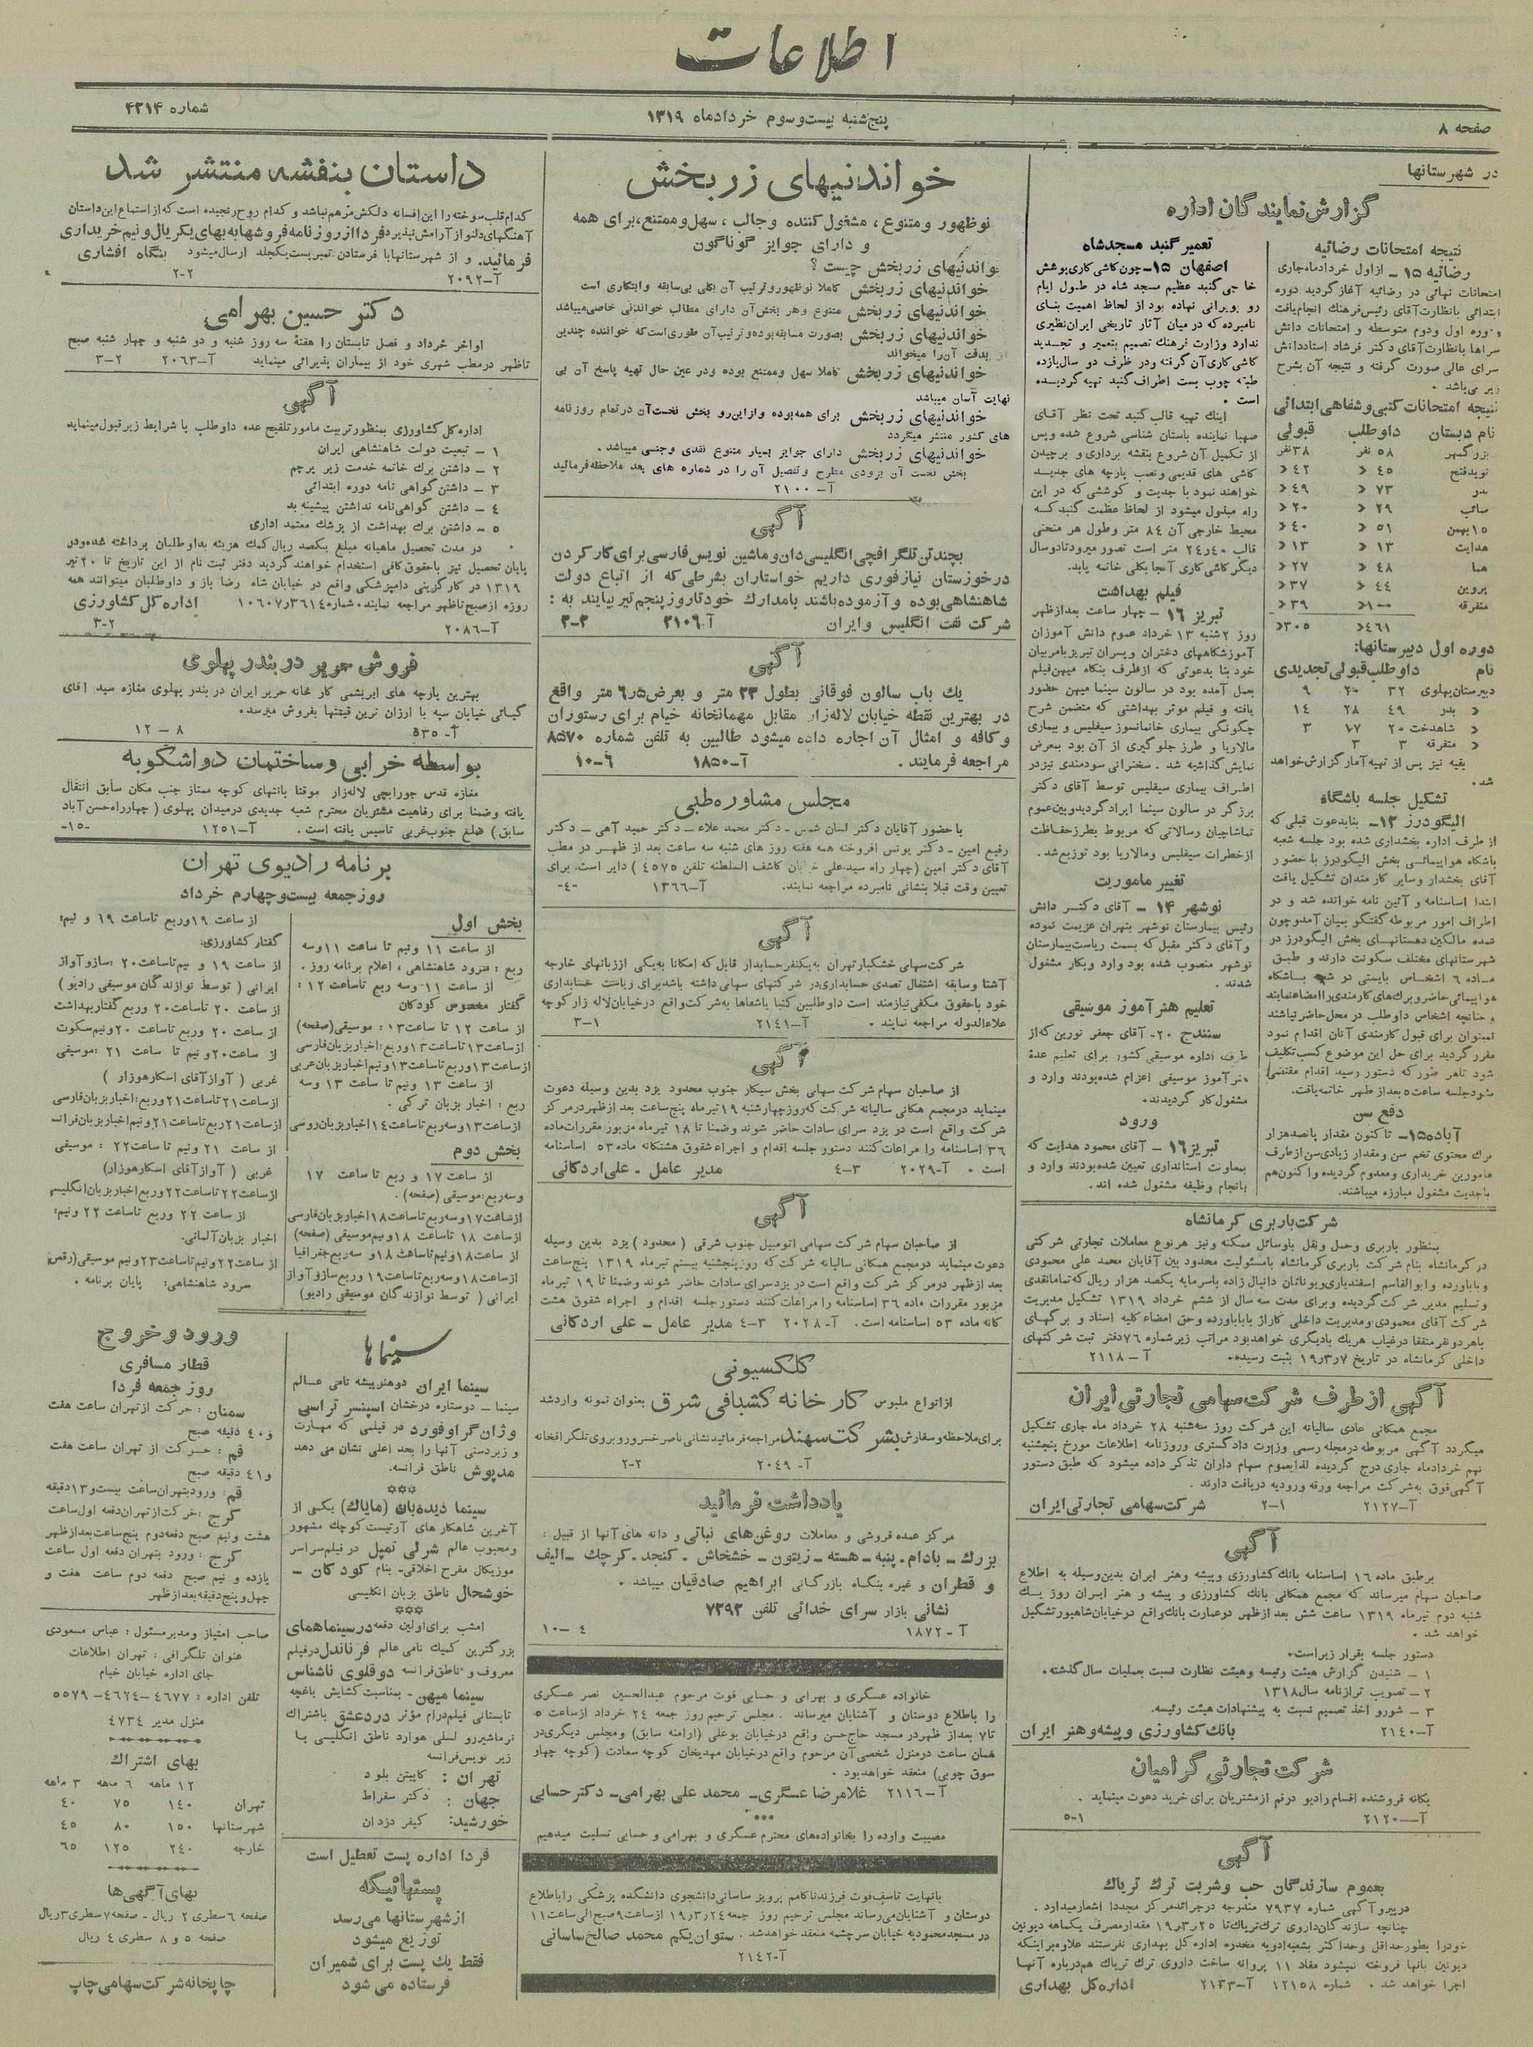 اطلاعات
صفحه ۸
پنج‌شنبه بیست‌وسوم خردادماه ۱۳۱۹
شماره ۴۲۱۴
در شهرستانها
گزارش نمایندگان اداره
نتیجه امتحانات رضائیه
رضائیه ۱۵ – از اول خردادماه جاری
امتحانات نهائی در رضائیه آغاز گردید دوره
ابتدائی بانظارت آقای رئیس فرهنگ انجام یافت
ودوره اول ودوم متوسطه و امتحانات دانش
سراها بانظارت آقای دکتر فرشاد استاددانش
سرای عالی صورت گرفته و نتیجه آن بشرح
زیر می‌باشد .
نتیجه امتحانات کتبی و شفاهی ابتدائی
نام دبستان داوطلب قبولی
بزرگمهر ۵۸ نفر ۳۸ نفر
نویدفتح ۴۵ » ۴۲ »
بدر ۷۳ » ۴۹ »
سائب ۲۹ » ۲۰ »
۱۵ بهمن ۵۱ » ۴۰ »
هدایت ۱۳ » ۱۳ »
هما ۴۸ » ۲۷ »
پروین ۴۴ » ۳۷ »
متفرقه ۱۰۰ » ۳۹ »
۴۶۱ » ۳۰۵ »
دوره اول دبیرستانها:
نام داوطلب قبولی تجدیدی
دبیرستان پهلوی ۳۲ ۲۰ ۹
» بدر ۴۹ ۲۸ ۱۴
» شاهدخت ۲۰ ۱۷ ۳
» متفرقه ۳ ۳
بقیه نیز پس از تهیه آمار گزارش خواهد
شد .
تشکیل جلسه باشگاه
الیگودرز ۱۳– بنابدعوت قبلی که
از طرف اداره بخشداری شده بود جلسه شعبه
باشگاه هواپیمائی بخش الیگودرز با حضور
آقای بخشدار وسایر کارمندان تشکیل یافت
ابتدا اساسنامه و آئین نامه خوانده شد و در
اطراف امور مربوطه گفتگو بمیان آمدوچون
عده مالکین دهستانهای بخش الیگودرز در
شهرستانهای مختلف سکونت دارند و طبق
ماده ۶ اشخاص بایستی در شهر بباشگاه
هواپیمائی حاضر و برك‌های کارمندی را امضاءنمایند
و چنانچه اشخاص داوطلب در محل حاضر نباشند
نمیتوان برای قبول کارمندی آنان اقدام نمود
مقرر گردید برای حل این موضوع کسب تکلیف
شود تاهر طور که دستور رسید اقدام مقتضی
شود جلسه ساعت ۵ بعد از ظهر خاتمه یافت.
دفع سن
آباده ۱۵– تاکنون مقدار پانصدهزار
برك محتوی تخم سن و مقدار زیادی سن از طرف
مامورین خریداری و معدوم گردیده و اکنون هم
باجدیت مشغول مبارزه میباشند.
تعمیر گنبد مسجدشاه
اصفهان ۱۵–چون کاشی کاری پوشش
خارجی گنبد عظیم مسجد شاه در طول ایام
رو بویرانی نهاده بود از لحاظ اهمیت بنای
نامبرده که در میان آثار تاریخی ایران نظیری
ندارد وزارت فرهنك تصمیم بتعمیر و تجدید
کاشی کاری آن گرفته ودر ظرف دو سال یازده
طبقه چوب بست اطراف گنبد تهیه گردیده
است .
اینك تهیه قالب گنبد تحت نظر آقای
صهبا نماینده باستان شناسی شروع شده وپس
از تکمیل آن شروع بنقشه برداری و برچیدن
کاشی های قدیمی ونصب پارچه های جدید
خواهند نمود با جدیت و کوششی که در این
راه مبذول میشود از لحاظ عظمت گنبد که
محیط خارجی آن ۸۴ متر وطول هر منحنی
قالب ۲۴ر۴۰ متر است تصور میرود تا دوسال
دیگر کاشی کاری آنجا بکلی خاتمه یابد.
فیلم بهداشت
تبریز ۱۶ – چهار ساعت بعدازظهر
روز ۲شنبه ۱۳ خرداد عموم دانش آموزان
آموزشگاههای دختران و پسران تبریز بامربیان
خود بنا بدعوتی که از طرف بنگاه میهن فیلم
بعمل آمده بود در سالون سینما میهن حضور
یافته و فیلم موثر بهداشتی که متضمن شرح
چگونگی بیماری خانمانسوز سیفلیس و بیماری
مالاریا و طرز جلوگیری از آن بود بمعرض
نمایش گذاشته شد . سخنرانی سودمندی نیز در
اطراف بیماری سیفلیس توسط آقای دکتر
برزگر در سالون سینما ایراد گردید و بین عموم
تماشاچیان رسالاتی که مربوط بطرز حفاظت
از خطرات سیفلیس و مالاریا بود توزیع شد.
تغییر ماموریت
نوشهر ۱۴ – آقای دکتر دانش
رئیس بیمارستان نوشهر بتهران عزیمت نموده
و آقای دکتر مقبل که بسمت ریاست بیمارستان
نوشهر منصوب شده بود وارد و بکار مشغول
شدند .
تعلیم هنرآموز موسیقی
سنندج ۲۰– آقای جعفر نورین که از
طرف اداره موسیقی کشور برای تعلیم عدهٔ
هنرآموز موسیقی اعزام شده بودند وارد و
مشغول کار گردیدند.
ورود
تبریز ۱۶ – آقای محمود هدایت که
بمعاونت استانداری تعیین شده بودند وارد و
بانجام وظیفه مشغول شده اند .
شرکت باربری کرمانشاه
بمنظور باربری وحمل ونقل باوسائل ممکنه ونیز هرنوع معاملات تجارتی شرکتی
در کرمانشاه بنام شرکت باربری کرمانشاه بامسئولیت محدود بین آقایان محمد علی محمودی
وباباورده و ابوالقاسم اسفندیاری ویوناتان دانیال زاده باسرمایه یکصد هزار ریال که تمامانقدی
وتسلیم مدیر شرکت گردیده وبرای مدت سه سال از ششم خرداد ۱۳۱۹ تشکیل مدیریت
شرکت آقای محمودی ومدیریت داخلی کاراژ باباباورده وحق امضاء کلیه اسناد و برگهای
باهردو نفر متفقا درغیاب هریك بادیگری خواهدبود مراتب زیر شماره ۷۶ دفتر ثبت شرکتهای
داخلی کرمانشاه در تاریخ ۱۹ر۳ر۷ بثبت رسیده. آ–۲۱۱۸
آگهی از طرف شرکت سهامی تجارتی ایران
مجمع همگانی عادی سالیانه این شرکت روز سه‌شنبه ۲۸ خرداد ماه جاری تشکیل
میگردد آگهی مربوطه درمجله رسمی وزارت دادگستری وروزنامه اطلاعات مورخ پنجشنبه
نهم خردادماه جاری درج گردیده لذا بعموم سهام داران تذکر داده میشود که طبق دستور
آگهی فوق بشرکت مراجعه ورقه ورودیه دریافت دارند .
آ–۲۱۲۷ ۱–۲ شرکت سهامی تجارتی ایران
آگهی
برطبق ماده ۱۶ اساسنامه بانك کشاورزی وپیشه وهنر ایران بدین‌وسیله به اطلاع
صاحبان سهام میرساند که مجمع همگانی بانك کشاورزی و پیشه و هنر ایران روز یك
شنبه دوم تیر ماه ۱۳۱۹ ساعت شش بعد ازظهر درعمارت بانك واقع درخیابان شاهپور تشکیل
خواهد شد .
دستور جلسه بقرار زیر است.
۱ – شنیدن گزارش هیئت رئیسه وهیئت نظارت نسبت بعملیات سال گذشته.
۲ – تصویب ترازنامه سال ۱۳۱۸
۳ – شورو اخذ تصمیم نسبت به پیشنهادات هیئت رئیسه.
آ–۲۱۴۰ بانك کشاورزی و پیشه و هنر ایران
شرکت تجارتی گرامیان
یگانه فروشنده اقسام رادیو درقم ازمشتریان برای خرید دعوت مینماید .
آ–۲۱۲۰ ۱–۵
آگهی
بعموم سازندگان حب و شربت ترك تریاك
درپیرو آگهی شماره ۷۹۳۷ مندرجه درجرائد مرکز مجددا اشعار میدارد.
چنانچه سازندگان داروی ترك تریاك تا ۲۵ر۳ر۱۹ مقدار مصرف یکماهه دیونین
خودرا بطور حداقل وحداکثر بشعبه ادویه مخدره اداره کل بهداری نفرستند علاوه بر اینکه
دیونین بآنها فروخته نمیشود مفاد ۱۱ پروانه ساخت داروی ترك تریاك هم درباره آنها
اجرا خواهد شد . شماره ۱۲۱۵۸ آ–۲۱۴۳ اداره کل بهداری
خواندنیهای زربخش
نوظهور و متنوع ، مشغول کننده و جالب ، سهل و ممتنع ، برای همه
و دارای جوایز گوناگون
خواندنیهای زربخش چیست ؟
خواندنیهای زربخش کاملا نوظهور و ترتیب آن بکلی بی‌سابقه و ابتکاری است
خواندنیهای زربخش متنوع و هر بخش آن دارای مطالب خواندنی خاصی میباشد
خواندنیهای زربخش بصورت مسابقه بوده و ترتیب آن طوری است که خواننده چندین
بدقت آن را میخواند
خواندنیهای زربخش کاملا سهل وممتنع بوده ودر عین حال تهیه پاسخ آن بی
نهایت آسان میباشد
خواندنیهای زربخش برای همه‌بوده وازاین‌رو بخش نخست‌آن درتمام روزنامه
های کشور منتشر میگردد
خواندنیهای زربخش دارای جوایز بسیار متنوع نقدی وجنسی میباشد .
بخش نخست آن بزودی مطرح وتفصیل آن را در شماره های بعد ملاحظه فرمائید
آ–۲۱۰۰
آگهی
بچند تن تلگرافچی انگلیسی دان و ماشین نویس فارسی برای کار کردن
در خوزستان نیاز فوری داریم خواستاران بشرطی که از اتباع دولت
شاهنشاهی بوده و آزموده باشند بامدارك خود تا روز پنجم تیر بیایند به :
شرکت نفت انگلیس و ایران آ–۲۱۰۹ ۲–۲
آگهی
یك باب سالون فوقانی بطول ۲۳ متر و بعرض ۶٫۵ متر واقع
در بهترین نقطه خیابان لاله‌زار مقابل مهمانخانه خیام برای رستوران
وکافه و امثال آن اجاره داده میشود طالبین به تلفن شماره ۸۵۷۰
مراجعه فرمایند . آ–۱۸۵۰ ۶–۱۰
مجلس مشاوره طبی
با حضور آقایان دکتر لسان شمس – دکتر محمد علاء – دکتر حمید آهی – دکتر
رفیع امین – دکتر یونس افروخته همه هفته روز های شنبه سه ساعت بعد از ظهر در مطب
آقای دکتر امین (چهار راه سیدعلی خیابان کاشف السلطنه تلفن ۴۵۷۵) دایر است. برای
تعیین وقت قبلا بنشانی نامبرده مراجعه نمایند. آ–۱۳۶۶ –۴–
آگهی
شرکت سهامی خشکبار تهران به‌یکنفر حسابدار قابل که امکانا به‌یکی از زبانهای خارجه
آشنا وسابقه اشتغال تصدی حسابداری در شرکتهای سهامی داشته باشد برای ریاست حسابداری
خود باحقوق مکفی نیازمند است داوطلبین کتبا یاشفاها به شرکت واقع درخیابان لاله زار کوچه
علاءالدوله مراجعه نمایند . آ–۲۱۴۱ ۱–۳
آگهی
از صاحبان سهام شرکت سهامی پخش سیگار جنوب محدود یزد بدین وسیله دعوت
مینماید درمجمع همگانی سالیانه شرکت که روزچهارشنبه ۱۹ تیرماه پنج‌ساعت بعد ازظهر درمرکز
شرکت واقع است در یزد سرای سادات حاضر شوند وضمنا تا ۱۸ تیرماه مزبور مقررات ماده
۳۶ اساسنامه را مراعات کنند دستور جلسه اقدام و اجراء شقوق هشتگانه ماده ۵۳ اساسنامه
است . آ–۲۰۲۹ ۳–۴ مدیر عامل – علی اردکانی
آگهی
از صاحبان سهام شرکت سهامی اتومبیل جنوب شرقی (محدود) یزد بدین وسیله
دعوت مینماید درمجمع همگانی سالیانه شرکت که روز پنجشنبه بیستم تیرماه ۱۳۱۹ پنج‌ساعت
بعد ازظهر درمرکز شرکت واقع است در یزد سرای سادات حاضر شوند وضمنا تا ۱۹ تیرماه
مزبور مقررات ماده ۳۶ اساسنامه را مراعات کنند دستور جلسه اقدام و اجراء شقوق هشت
گانه ماده ۵۳ اساسنامه است. آ–۲۰۲۸ ۳–۴ مدیر عامل – علی اردکانی
کلکسیونی
ازانواع ملبوس کارخانه کشبافی شرق بعنوان نمونه واردشد
برای ملاحظه وسفارش بشرکت سهند مراجعه فرمائید نشانی ناصرخسرو روبروی تلگرافخانه
آ–۲۰۴۹ ۲–۲
یادداشت فرمائید
مرکز عمده فروشی و معاملات روغن‌های نباتی و دانه های آنها از قبیل :
بزرك – بادام – پنبه – هسته – زیتون – خشخاش – کنجد – کرچك – الیف
و قطران و غیره بنگاه بازرگانی ابراهیم صادقیان میباشد .
نشانی بازار سرای خدائی تلفن ۷۳۹۳
آ–۱۸۷۲ ۴–۱۰
خانواده عسگری و بهرامی و حسابی فوت مرحوم عبدالحسین نصر عسگری
را باطلاع دوستان و آشنایان میرساند . مجلس ترحیم روز جمعه ۲۴ خرداد ازساعت ۵
تا ۷ بعد از ظهر در مسجد حاج‌حسن واقع درخیابان بوعلی (ارامنه سابق) ومجلس دیگری در
همان ساعت درمنزل شخصی آن مرحوم واقع درخیابان مهدیخان کوچه سعادت (کوچه چهار
سوق چوبی) منعقد خواهدبود .
آ–۲۱۱۶ غلامرضا عسگری– محمد علی بهرامی– دکتر حسابی
***
مصیبت وارده را بخانواده‌های محترم عسگری و بهرامی و حسابی تسلیت میدهیم
بانهایت تاسف فوت فرزند ناکامم پرویز ساسانی دانشجوی دانشکده پزشکی را باطلاع
دوستان و آشنایان می‌رساند مجلس ترحیم روز جمعه ۲۴ر۳ر۱۹ ازساعت ۹ صبح الی ساعت ۱۱
در مسجد محمودیه خیابان سرچشمه منعقد خواهدشد. ستوان یکم محمد صالح ساسانی
آ–۲۱۴۲
داستان بنفشه منتشر شد
کدام قلب سوخته را این افسانه دلکش مرهم نباشد و کدام روح رنجیده است که از استماع این داستان
آهنگهای دلنواز آرامش نپذیرد فردا از روزنامه فروشها به بهای یکریال و نیم خریداری
فرمائید. و از شهرستانها با فرستادن تمبر پست یکجلد ارسال میشود بنگاه افشاری
آ–۲۰۹۲ ۲–۲
دکتر حسین بهرامی
اواخر خرداد و فصل تابستان را هفتهٔ سه روز شنبه و دو شنبه و چهار شنبه صبح
تاظهر درمطب شهری خود از بیماران پذیرائی مینماید آ–۲۰۶۳ ۲–۳
آگهی
اداره کل کشاورزی بمنظور تربیت مامور تلقیح عده داوطلب با شرایط زیر قبول مینماید
۱ – تبعیت دولت شاهنشاهی ایران
۲ – داشتن برك خاتمه خدمت زیر پرچم
۳ – داشتن گواهی نامه دوره ابتدائی
۴ – داشتن گواهی‌نامه نداشتن پیشینه بد
۵ – داشتن برك بهداشت از پزشك معتمد اداری
در مدت تحصیل ماهیانه مبلغ یکصد ریال کمك هزینه بداوطلبان پرداخته شده ودر
پایان تحصیل نیز باحقوق کافی استخدام خواهند گردید دفتر ثبت نام از این تاریخ تا ۲۰ تیر
۱۳۱۹ در کارگزینی دامپزشکی واقع در خیابان شاه رضا باز و داوطلبان میتوانند همه
روزه از صبح تاظهر مراجعه نمایند . شماره ۳۶۱۴ر۱۰۶۰۷ اداره کل کشاورزی
آ–۲۰۸۶ ۲–۳
فروش حریر در بندر پهلوی
بهترین پارچه های ابریشمی کارخانه حریر ایران در بندر پهلوی مغازه سید آقای
گیائی خیابان سپه با ارزان ترین قیمتها بفروش میرسد.
آ–۵۳۵ ۸–۱۲
بواسطه خرابی و ساختمان دواشکوبه
مغازه قدس جورابچی لاله‌زار موقتا بانتهای کوچه ممتاز جنب مکان سابق انتقال
یافته وضمنا برای رفاهیت مشتریان محترم شعبه جدیدی درمیدان پهلوی (چهارراه حسن آباد
سابق) ضلع جنوب غربی تاسیس یافته است . آ–۱۲۵۱ –۱۵–
برنامه رادیوی تهران
روز جمعه بیست و چهارم خرداد
بخش اول
از ساعت ۱۱ ونیم تا ساعت ۱۱ وسه
ربع : سرود شاهنشاهی ، اعلام برنامه روز .
از ساعت ۱۱ وسه ربع تاساعت ۱۲ :
گفتار مخصوص کودکان
از ساعت ۱۲ تا ساعت ۱۳ : موسیقی (صفحه)
ازساعت ۱۳ تاساعت ۱۳ وربع: اخبار بزبان فارسی
ازساعت ۱۳ وربع تاساعت ۱۳ ونیم اخبار بزبان عربی
از ساعت ۱۳ ونیم تا ساعت ۱۳ وسه
ربع : اخبار بزبان ترکی .
ازساعت ۱۳ وسه ربع تاساعت ۱۴ اخبار بزبان روسی
بخش دوم
از ساعت ۱۷ و ربع تا ساعت ۱۷
وسه ربع: موسیقی (صفحه) .
ازساعت ۱۷ وسه ربع تاساعت ۱۸ اخبار بزبان فارسی
از ساعت ۱۸ تاساعت ۱۸ ونیم موسیقی (صفحه)
از ساعت ۱۸ ونیم تا ساعت ۱۸ و سه ربع جغرافیا
ازساعت ۱۸ وسه ربع تاساعت ۱۹ وربع ساز و آواز
ایرانی (توسط نوازندگان موسیقی رادیو)
از ساعت ۱۹ وربع تاساعت ۱۹ و نیم:
گفتار کشاورزی.
از ساعت ۱۹ و نیم تاساعت ۲۰ : ساز و آواز
ایرانی (توسط نوازندگان موسیقی رادیو)
از ساعت ۲۰ تاساعت ۲۰ وربع گفتار بهداشت
از ساعت ۲۰ وربع تاساعت ۲۰ ونیم سکوت
از ساعت ۲۰ و نیم تا ساعت ۲۱ : موسیقی
غربی (آواز آقای اسکار هوزار)
ازساعت ۲۱ تاساعت ۲۱ وربع: اخبار بزبان فارسی
ازساعت ۲۱ وربع تاساعت ۲۱ ونیم اخبار بزبان فرانسه
از ساعت ۲۱ ونیم تاساعت ۲۲ : موسیقی
غربی (آواز آقای اسکار هوزار)
ازساعت ۲۲ تاساعت ۲۲ وربع اخبار بزبان انگلیسی
از ساعت ۲۲ وربع تاساعت ۲۲ ونیم:
اخبار بزبان آلمانی.
از ساعت ۲۲ ونیم تاساعت ۲۳ ونیم موسیقی (رقص)
سرود شاهنشاهی: پایان برنامه .
سینماها
سینما ایران دوهنرپیشه نامی عالم
سینما – دوستاره درخشان اسپنسر تراسی
وژان گراوفورد در فیلمی که مهارت
و زبردستی آنها را بحد اعلی نشان می دهد
مدپوش ناطق فرانسه.
***
سینما دیده‌بان (مایاك) یکی از
آخرین شاهکار های آرتیست کوچك مشهور
ومحبوب عالم شرلی تمپل در فیلم سراسر
موزیکال مفرح اخلاقی– بنام کودکان –
خوشحال ناطق بزبان انگلیسی
***
امشب برای اولین دفعه در سینماهمای
بزرگترین کمیك نامی عالم فرناندل درفیلم
معروف و ناطق فرانسه دوقلوی ناشناس
سینما میهن – بمناسبت گشایش باغچه
تابستانی فیلم درام مؤثر دردعشق باشتراك
نرماشیرر و لسلی هوارد ناطق انگلیسی با
زیر نویس فرانسه
تهران : کاپیتن بلود
جهان : دکتر سقراط
خورشید: کیفر دزدان
فردا اداره پست تعطیل است
پستهائیکه
از شهرستانها می‌رسد
توزیع میشود
فقط یك پست برای شمیران
فرستاده می شود
ورود و خروج
قطار مسافری
روز جمعه فردا
سمنان: حرکت از تهران ساعت هفت
و ۴۰ دقیقه صبح
قم : حرکت از تهران ساعت هفت
و ۴۱ دقیقه صبح
قم: ورود بتهران ساعت بیست و ۱۳ دقیقه
کرج : حرکت از تهران دفعه اول ساعت
هشت ونیم صبح دفعه دوم پنج‌ساعت بعدازظهر
کرج : ورود بتهران دفعه اول ساعت
یازده و نیم صبح دفعه دوم ساعت هفت و
چهل وپنج دقیقه بعدازظهر
صاحب امتیاز ومدیر مسئول: عباس مسعودی
عنوان تلگرافی : تهران اطلاعات
جای اداره خیابان خیام
تلفن اداره : ۴۶۷۷–۴۶۲۴–۵۵۷۹
منزل مدیر ۴۷۳۴
بهای اشتراك
۱۲ ماهه ۶ ماهه ۳ ماهه
تهران ۱۴۰ ۷۵ ۴۰
شهرستانها ۱۵۰ ۸۰ ۴۵
خارجه ۲۴۰ ۱۲۵ ۶۵
بهای آگهی‌ها
صفحه ۶ سطری ۲ ریال – صفحه ۷ سطری ۳ ریال
صفحه ۵ و ۸ سطری ۴ ریال
چاپخانه شرکت سهامی چاپ